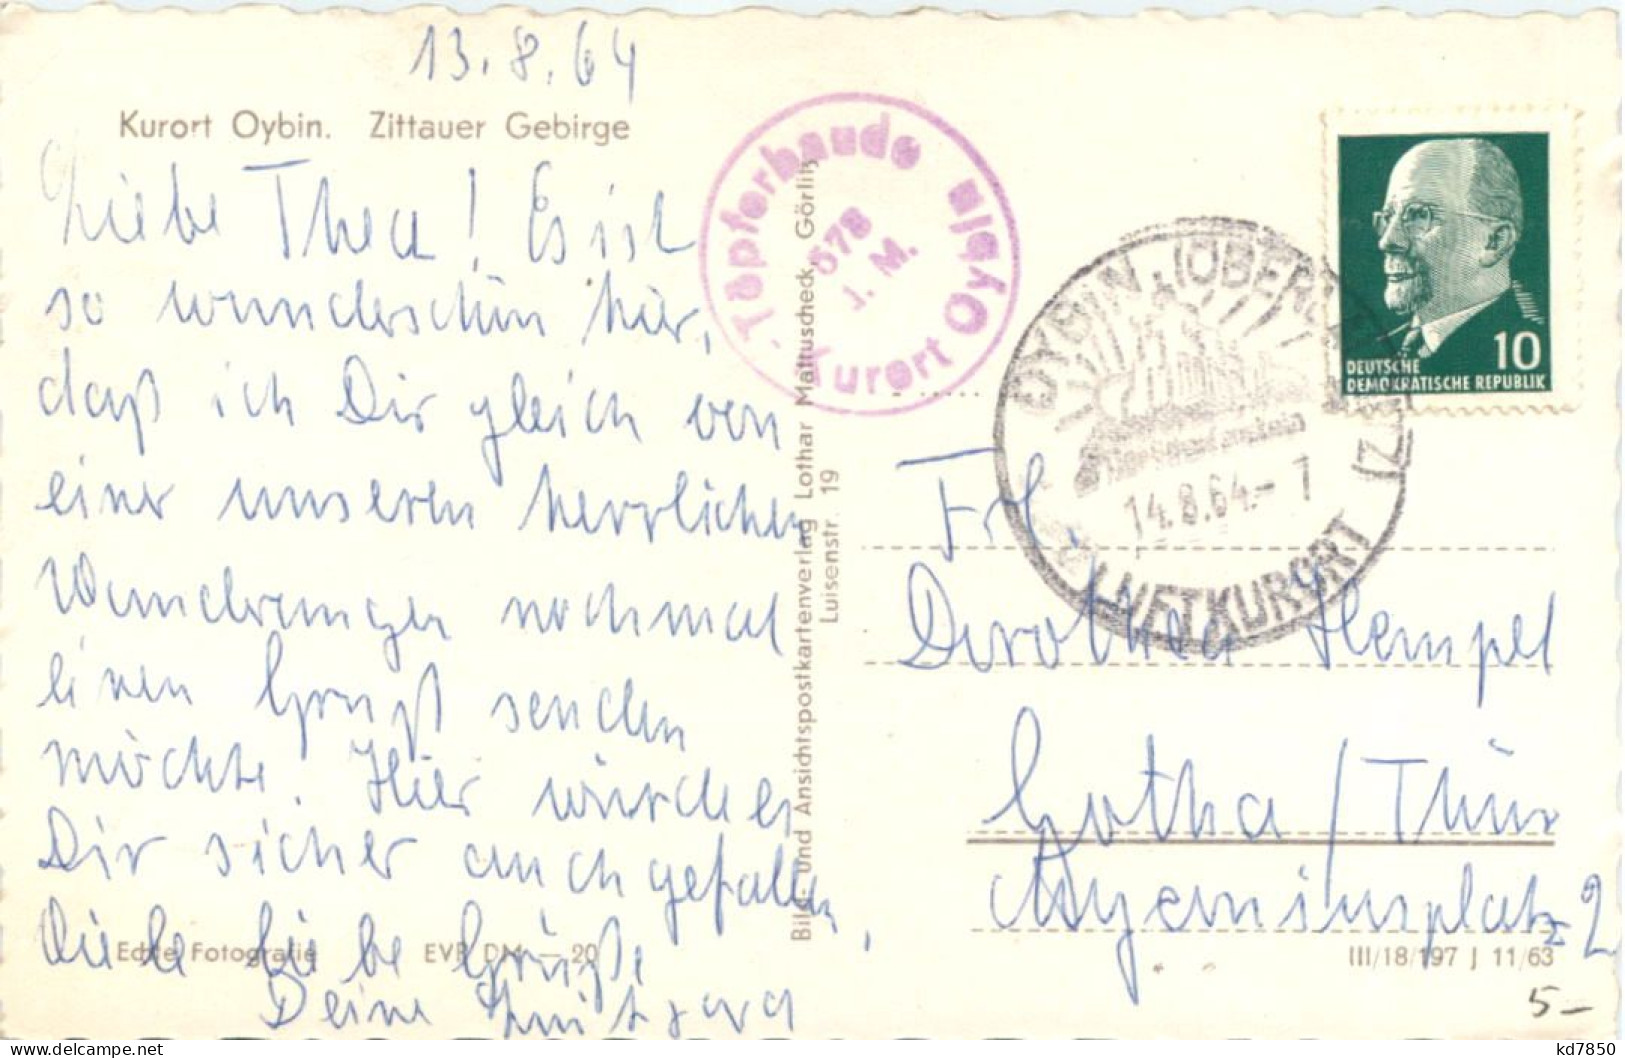 13.8.64
Kurort Oybin. Zittauer Gebirge
Liebe Thea! Es ist
so wunderschön hier,
daß ich Dir gleich von
einer unseren herrlichen
Wanderungen nochmal
einen Gruß senden
möchte. Hier würde es
Dir sicher auch gefallen,
Viele liebe Grüße,
Deine
Echte Fotografie EVP DM —,20
Töpferbaude
578
J. M.
Kurort Oybin
Bild- und Ansichtspostkartenverlag Lothar Mattuscheck, Görlitz
Luisenstr. 19
OYBIN (OBERLAUSITZ)
14.8.64.-7
LUFTKURORT
10
DEUTSCHE
DEMOKRATISCHE REPUBLIK
Frl.
Dorothea Hempel
Gotha / Thür
2
III/18/197 J 11/63
5-
kd7850